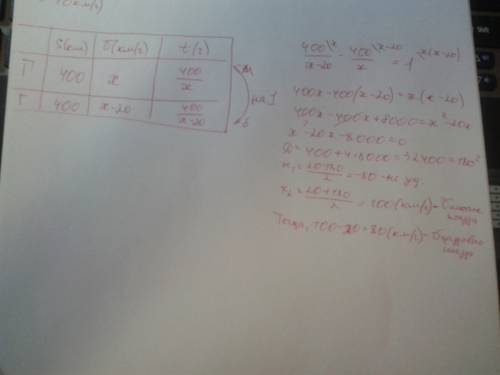 S(км) V(км/г) t(г)
П 400 x 400/x
Т 400 x-20 400/(x-20)
на 1
400/(x-20) - 400/x = 1
400x-400(x-20)=x(x-20)
400x-400x+8000=x²-20x
x²-20x-8000=0
D=400+4·8000=32400=180²
x₁=(20-180)/2=-80-не уд.
x₂=(20+180)/2=100(км/г)-
Тоді, 100-20=80(км/г)-